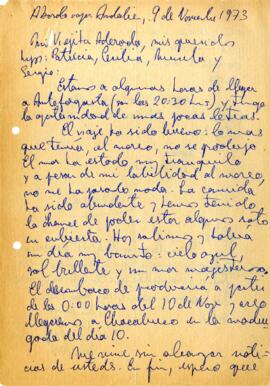 A bordo vapor Andalién, 9 de Noviembre 1973
Mi Viejita Adorada, mis queridos
hijos: Patricia, Cecilia, Marcela y
Sergio:
Estamos a algunas horas de llegar
a Antofagasta (son las 20:30 hrs) y tengo
la oportunidad de unas pocas letras.
El viaje ha sido bueno: lo más
que temía, el mareo, no se produjo.
El mar ha estado muy tranquilo
y a pesar de mi labilidad al mareo,
no me ha pasado nada. La comida
ha sido abundante y hemos tenido
la chance de poder estar algunos ratos
en cubierta. Hoy salimos y había
un día muy bonito: cielo azul,
sol brillante y un mar majestuoso.
El desembarco se produciría a partir
de las 0:00 horas del 10 de Nov y creo
llegaremos a Chacabuco en la madru
gada del día 10.
Me vine sin alcanzar noti-
cias de ustedes. En fin, espero que